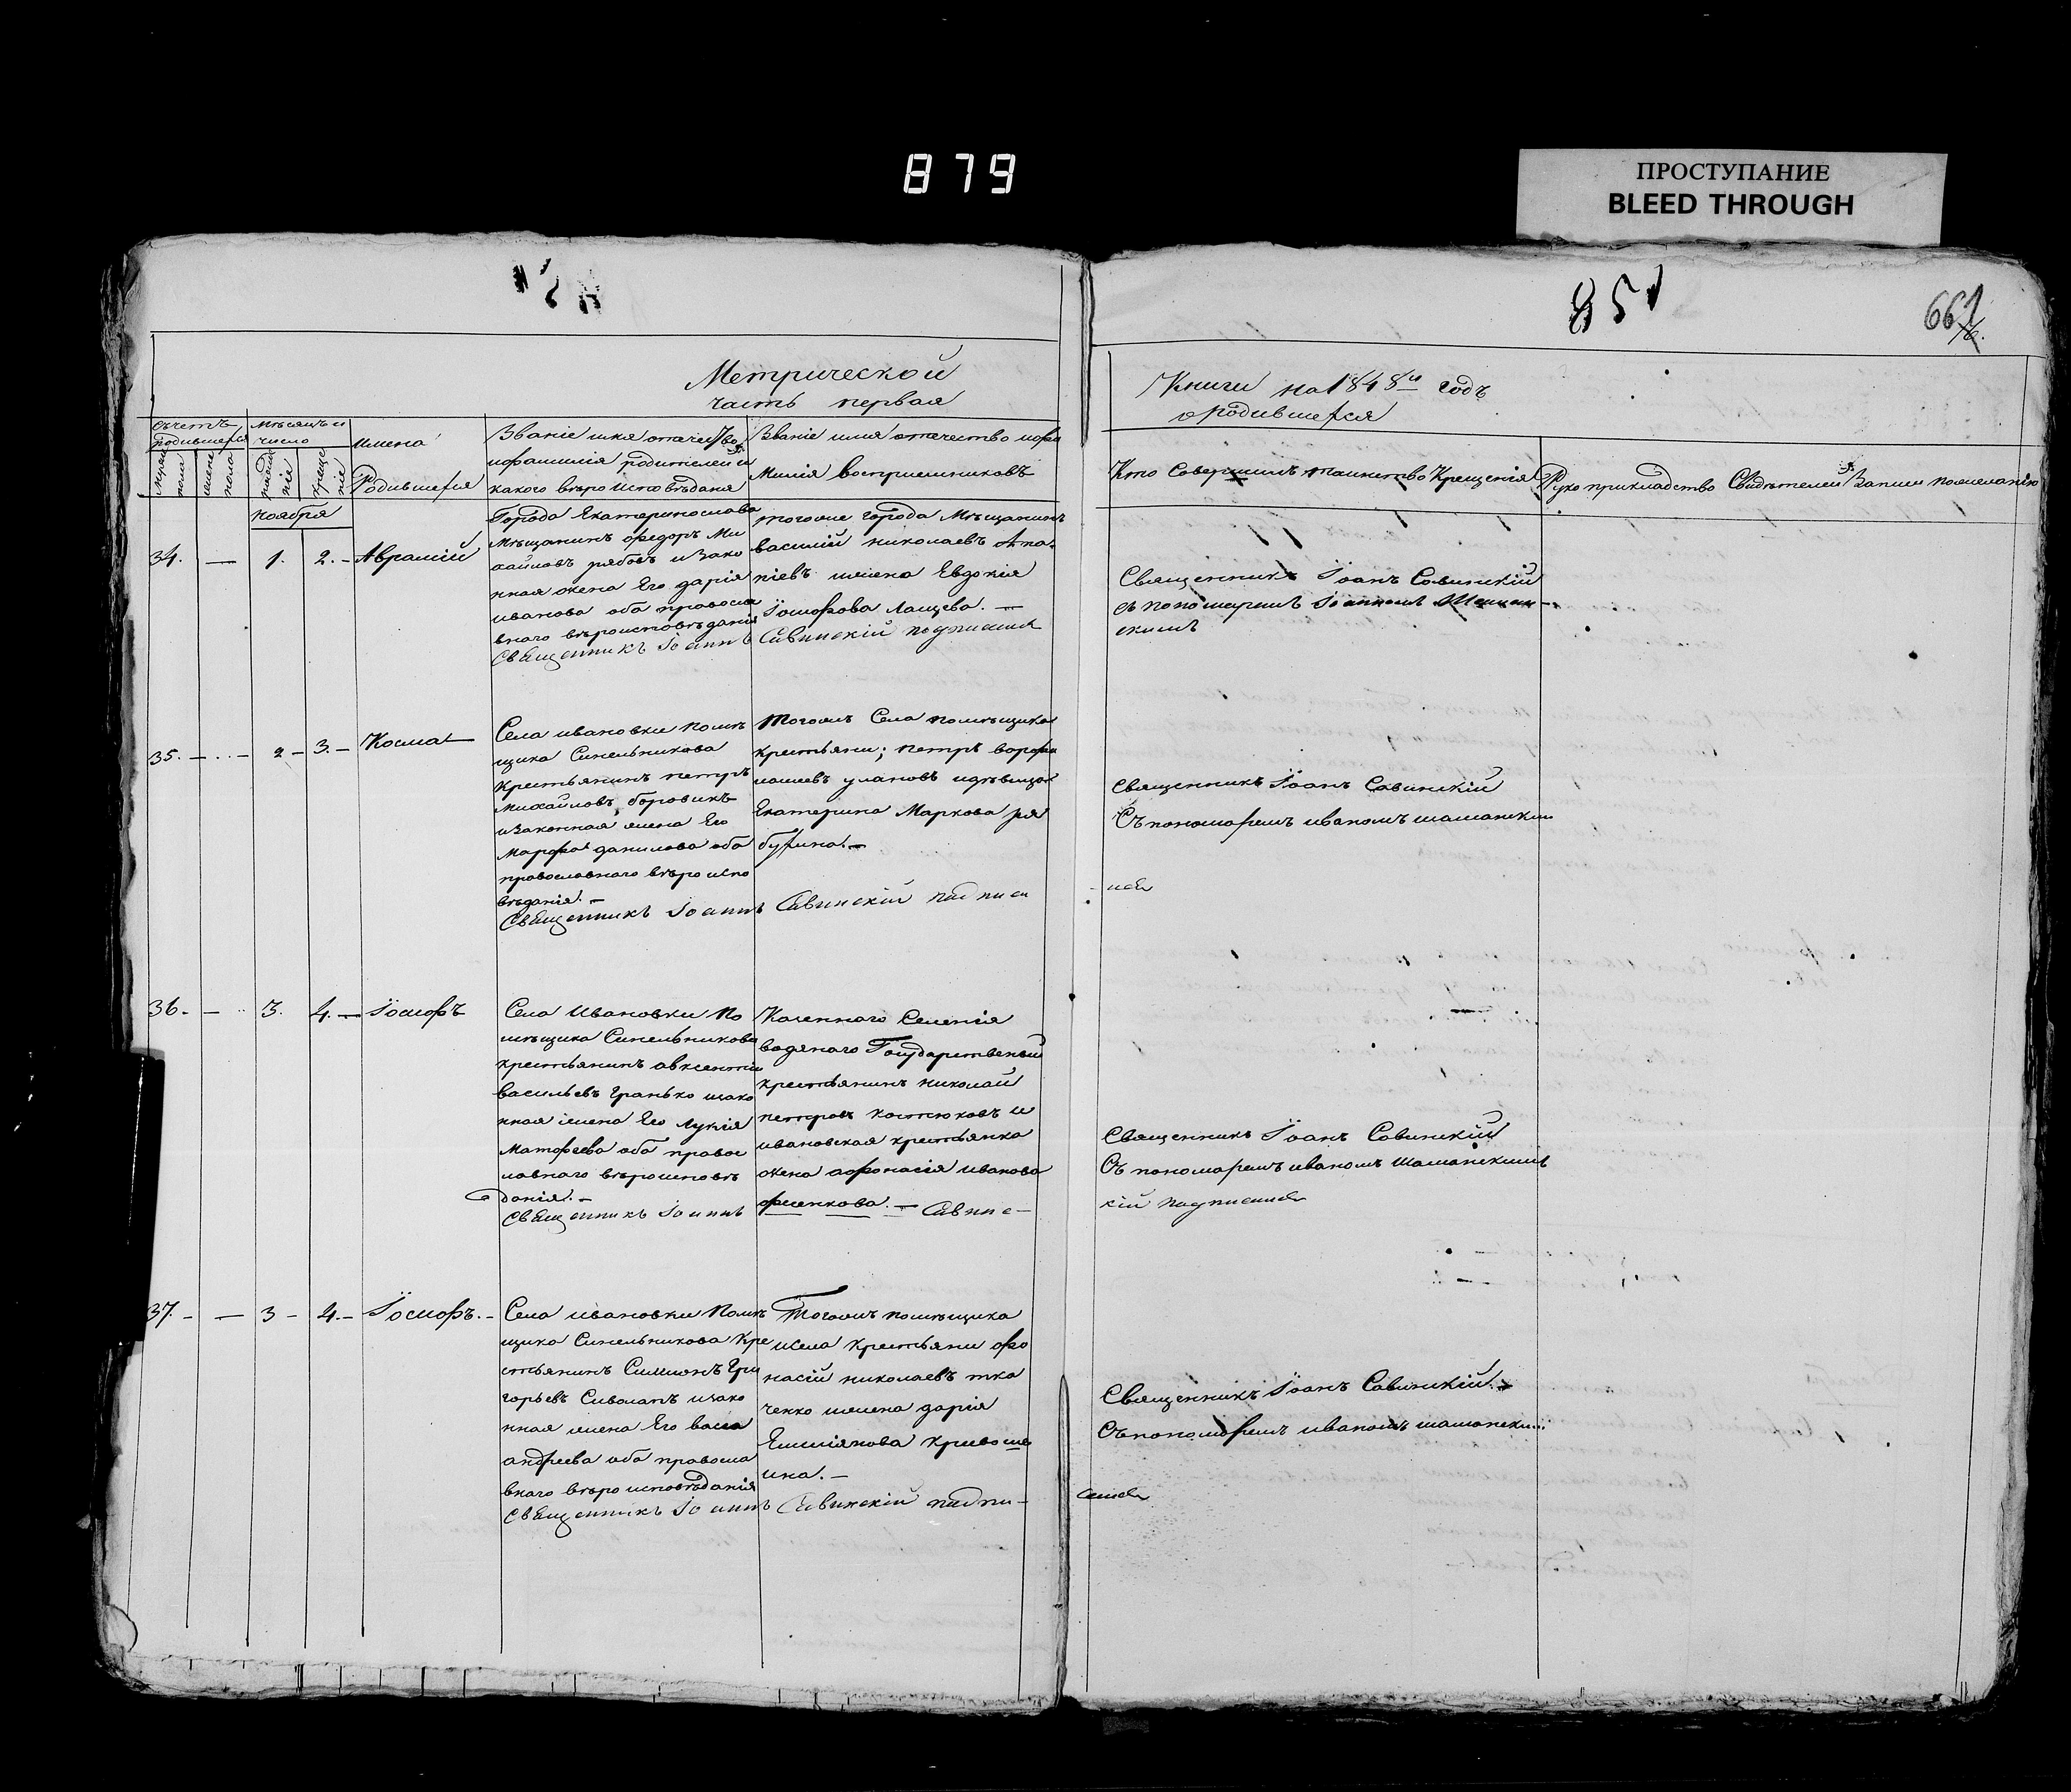 879
ПРОСТУПАНИЕ
BLEED THROUGH
851
661
Метрической
часть первая
Книги на 1848й годъ
о родившехся
Счетъ родившехся
Мѣсяцъ и число
имена Родившехся
мужеска пола
женска пола
рожденія
крещенія
Званіе имя отечество
ифамилія родителей и
какого вѣро исповѣданя
Званіе имя отечество ифа
милія восприемниковъ
Кто Совершилъ таинство Крещенія
Руко прикладство Свидѣтелей Записи пожеланію
ноября
34. — 1. 2. - Аврамій
Города Екатеринослава
Мѣщанинъ федоръ Ми
хайловъ рябовъ и Зако
нная жена Его дарія
иванова оба правосла
внаго вѣроисповѣданія
тогоже города Мѣщанинъ
василій николаевъ
ижена Евдокія
Іосифова Лащева. —
Священникъ Іоаннъ Савинскій подписался
Священникъ Іоанъ Савинскій
съ пономаремъ Іоанномъ Шаман-
скимъ
35. - - 2 - 3. - Косма
Села ивановки помѣ
щика Синельникова
Крестьянинъ петръ
Михайловъ боровикъ
изаконная жена Его
Марфа данилова оба
православнаго вѣро испо
вѣданія. -
Тогожъ Села помѣщика
крестьяни; петръ варфа
ламеевъ улановъ идѣвица
Екатерина Маркова ря
бухина. —
Священникъ Іоаннъ Савинскій подписа
лся
Священникъ Іоанъ Савинскій
Съ пономаремъ иваномъ шаманским
36. - - 3. 4. - Іосифъ
Села Ивановки По
мѣщика Синельникова
крестьянинъ авксентій
васильевъ Гранько изако
нная жена Его Лукія
Матфеева оба правос
лавнаго вѣроисповѣ
данія. -
Казеннаго Селенія
водянаго Государственый
крестьянинъ николай
петровъ костюковъ и
ивановская крестьянка
жена афонасія иванова
фесенкова. —
Священникъ Іоаннъ Савинс-
кій подписался
Священникъ Іоанъ Савинскій
Съ пономаремъ иваномъ Шаманскимъ
37. - - 3 - 4. - Іосифъ. -
Села ивановки Помѣ
щика Синельникова Кре
стьянинъ Симионъ Гри
горьевъ Сиволапъ изако
нная жена Его васса
андреева оба правосла
внаго вѣро исповѣданія
Тогожъ помѣщика
исела крестьяни афо
насій николаевъ тка
ченко ижена дарія
Емилянова кривоше
ина. -
Священникъ Іоаннъ Савинскій подпи-
сался
Священникъ Іоанъ Савинскій. -
Съ пономаремъ иваномъ шаманским